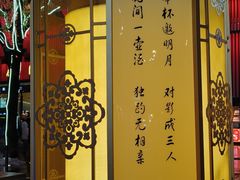 间一壶酒 独酌无相亲
杯邀明月 对影成三人